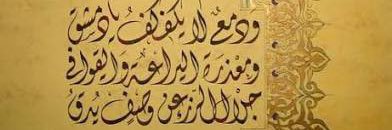 ودمع لا يكفكف يا دمشق
ومعذرة اليراعة والقوافي
جلال الرزء عن وصف يدق